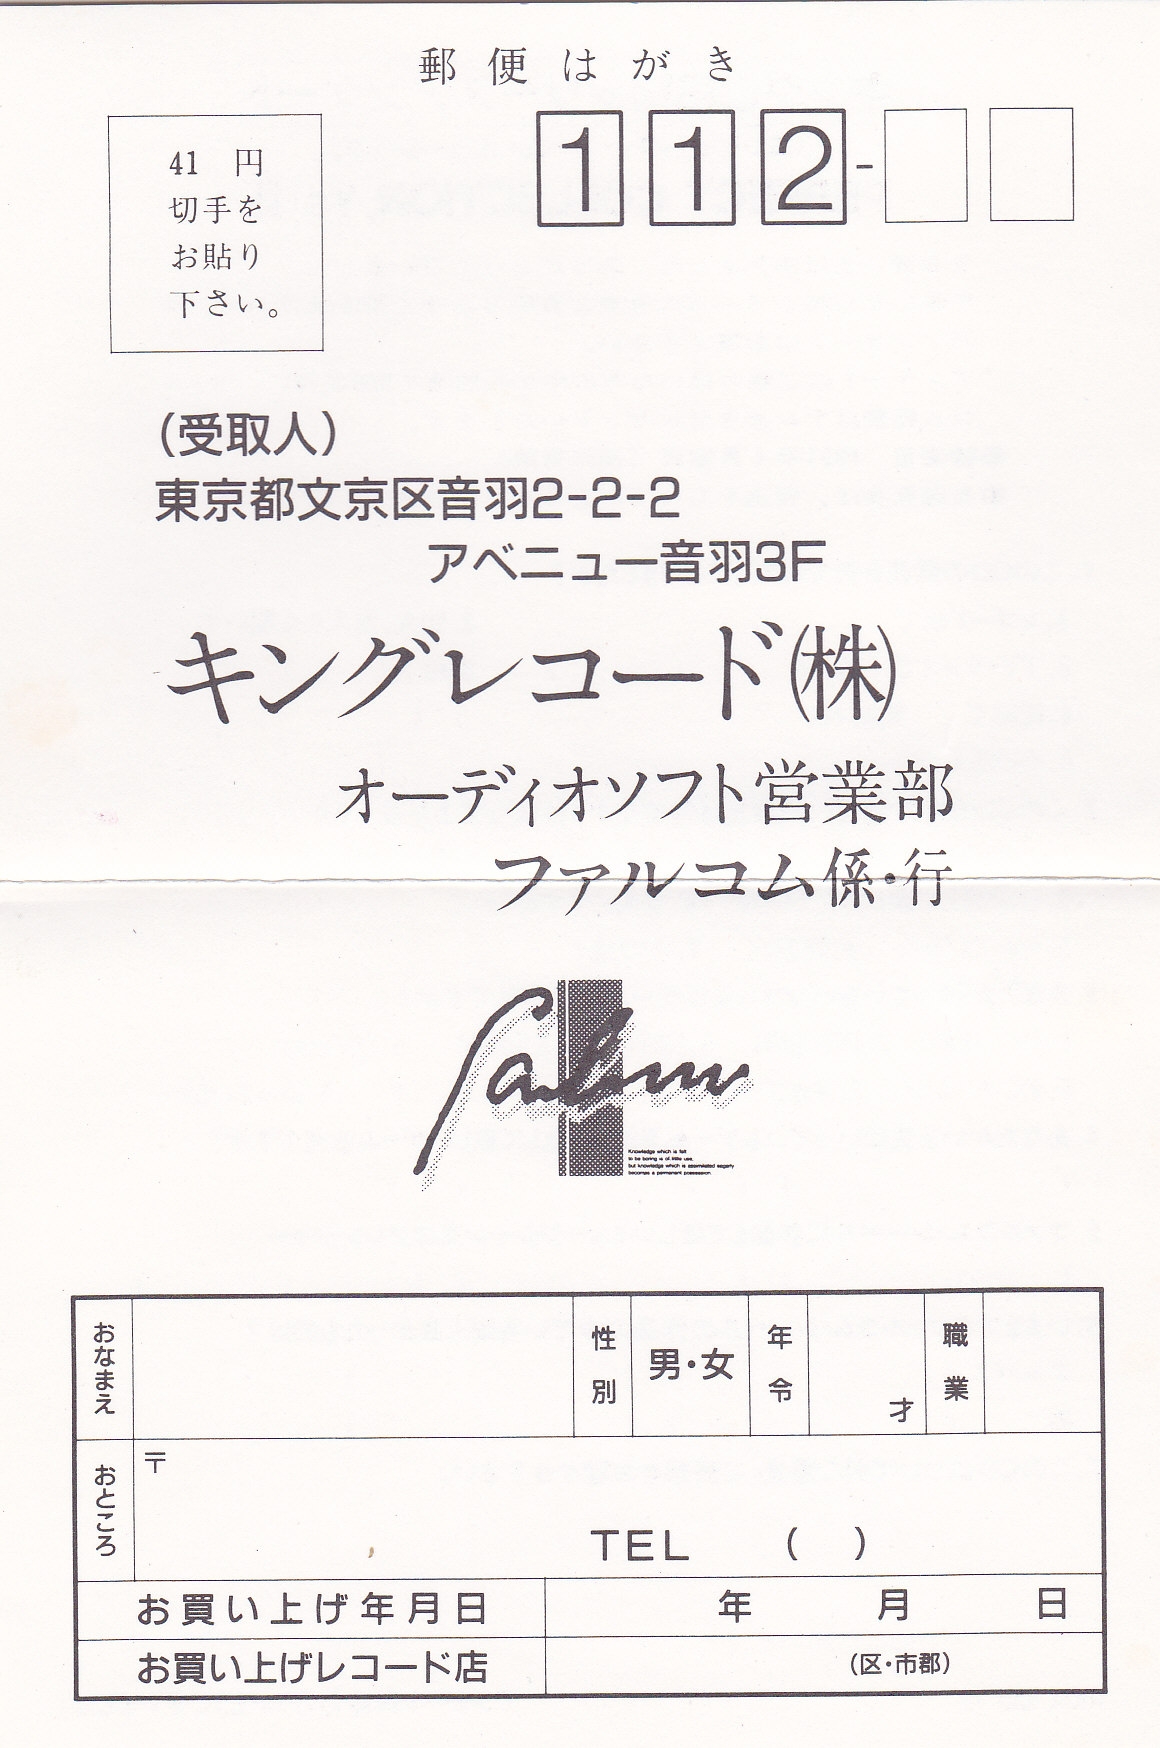 郵便はがき
112-
41 円
切手を
お貼り
下さい。
（受取人）
東京都文京区音羽2-2-2
アベニュー音羽3F
キングレコード㈱
オーディオソフト営業部
ファルコム係・行
Falcom
Knowledge which is felt
to be boring is of little use,
but knowledge which is assimilated eagerly
becomes a permanent possession
おなまえ
性別
男・女
年令
才
職業
おところ
〒
TEL （ ）
お買い上げ年月日
年 月 日
お買い上げレコード店
（区・市郡）